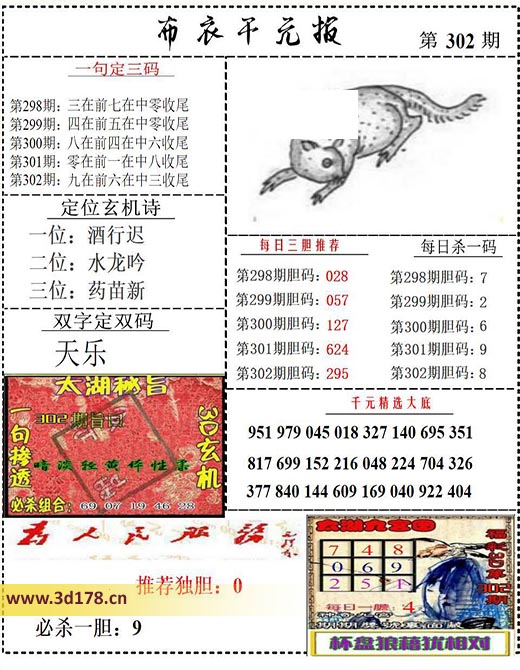 布衣千元报
第 302 期
一句定三码
第298期：三在前七在中零收尾
第299期：四在前五在中零收尾
第300期：八在前四在中六收尾
第301期：零在前一在中八收尾
第302期：九在前六在中三收尾
定位玄机诗
一位：酒行迟
二位：水龙吟
三位：药苗新
双字定双码
天乐
每日三胆推荐
第298期胆码：028
第299期胆码：057
第300期胆码：127
第301期胆码：624
第302期胆码：295
每日杀一码
第298期胆码：7
第299期胆码：2
第300期胆码：6
第301期胆码：9
第302期胆码：8
千元精选大底
951 979 045 018 327 140 695 351
817 699 152 216 048 224 704 326
377 840 144 609 169 040 922 404
太湖秘旨
302期旨曰
一句掺透
3D玄机
暗淡轻黄体性柔
必杀组合：69 07 19 46 28
为人民服务
www.3d178.cn
推荐独胆：0
必杀一胆：9
太湖九宫图
7 4 8
0 6 9
2 5 1
每日一胆：4
福彩3D第302期
杯盘狼藉犹相对